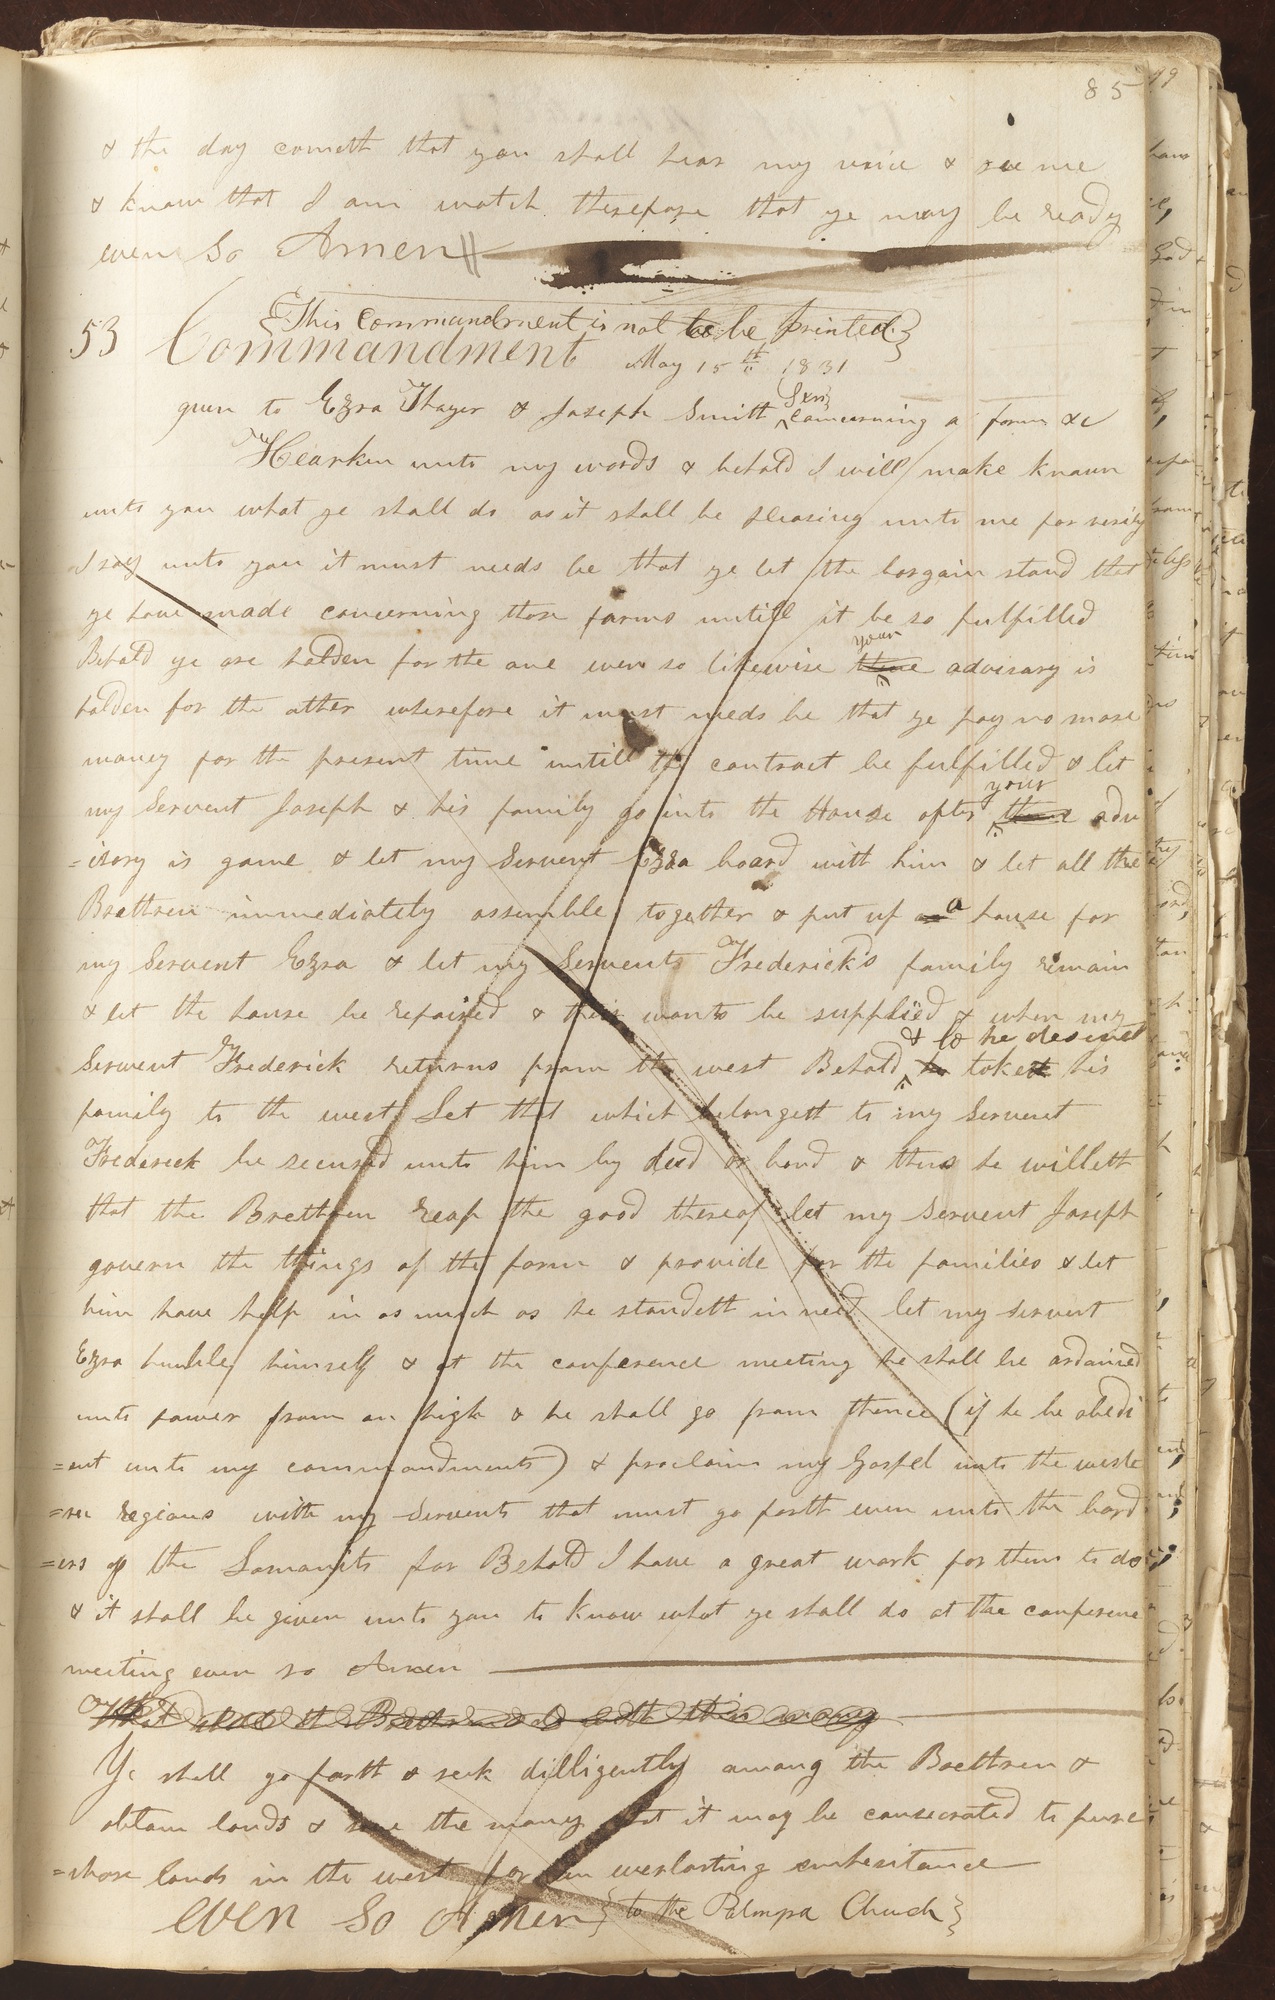 85
& the day cometh that you shall hear my voice & see me
& know that I am watch therefore that ye may be ready
even So Amen
{This Commandment is not to be printed}
53 Commandment May 15th 1831
given to Ezra Thayer & Joseph Smith {Jr} concerning a farm &c
Hearken unto my words & behold I will make known
unto you what ye shall do as it shall be pleasing unto me for verily
I say unto you it must needs be that ye let the bargain stand that
ye have made concerning those farms untill it be so fulfilled
Behold ye are holden for the one even so likewise thine your advisary is
holden for the other wherefore it must needs be that ye pay no more
money for the present time untill the contract be fulfilled & let
my Servent Joseph & his family go into the House after thine your adv
=isary is gone & let my Servent Ezra board with him & let all the
Brethren immediately assemble together & put up an a house for
my Servent Ezra & let my Servents Frederick's family remain
& let the house be repaired & their wants be supplied & when my
Servent Frederick returns from the west Behold & lo he desireth he taketh his
family to the west Let that which belongeth to my Servent
Frederick be secured unto him by deed or bond & thus he willeth
that the Brethren reap the good thereof let my Servent Joseph
govern the things of the farm & provide for the families & let
him have help in as much as he standeth in need let my servent
Ezra humble himself & at the conference meeting he shall be ordained
unto power from on high & he shall go from thence (if he be obedi
=ent unto my commandments) & proclaim my Gospel unto the weste
=ren regions with my Servents that must go forth even unto the bord
=ers of the Lamanits for Behold I have a great work for them to do
& it shall be given unto you to know what ye shall do at the conference
meeting even so Amen
What shall the Brethren do with their money
Ye shall go forth & seek dilligently among the Brethren &
obtain lands & save the money that it may be consecrated to purc
=chase lands in the west for an everlasting enheritance
even So Amen {to the Palmyra Church}